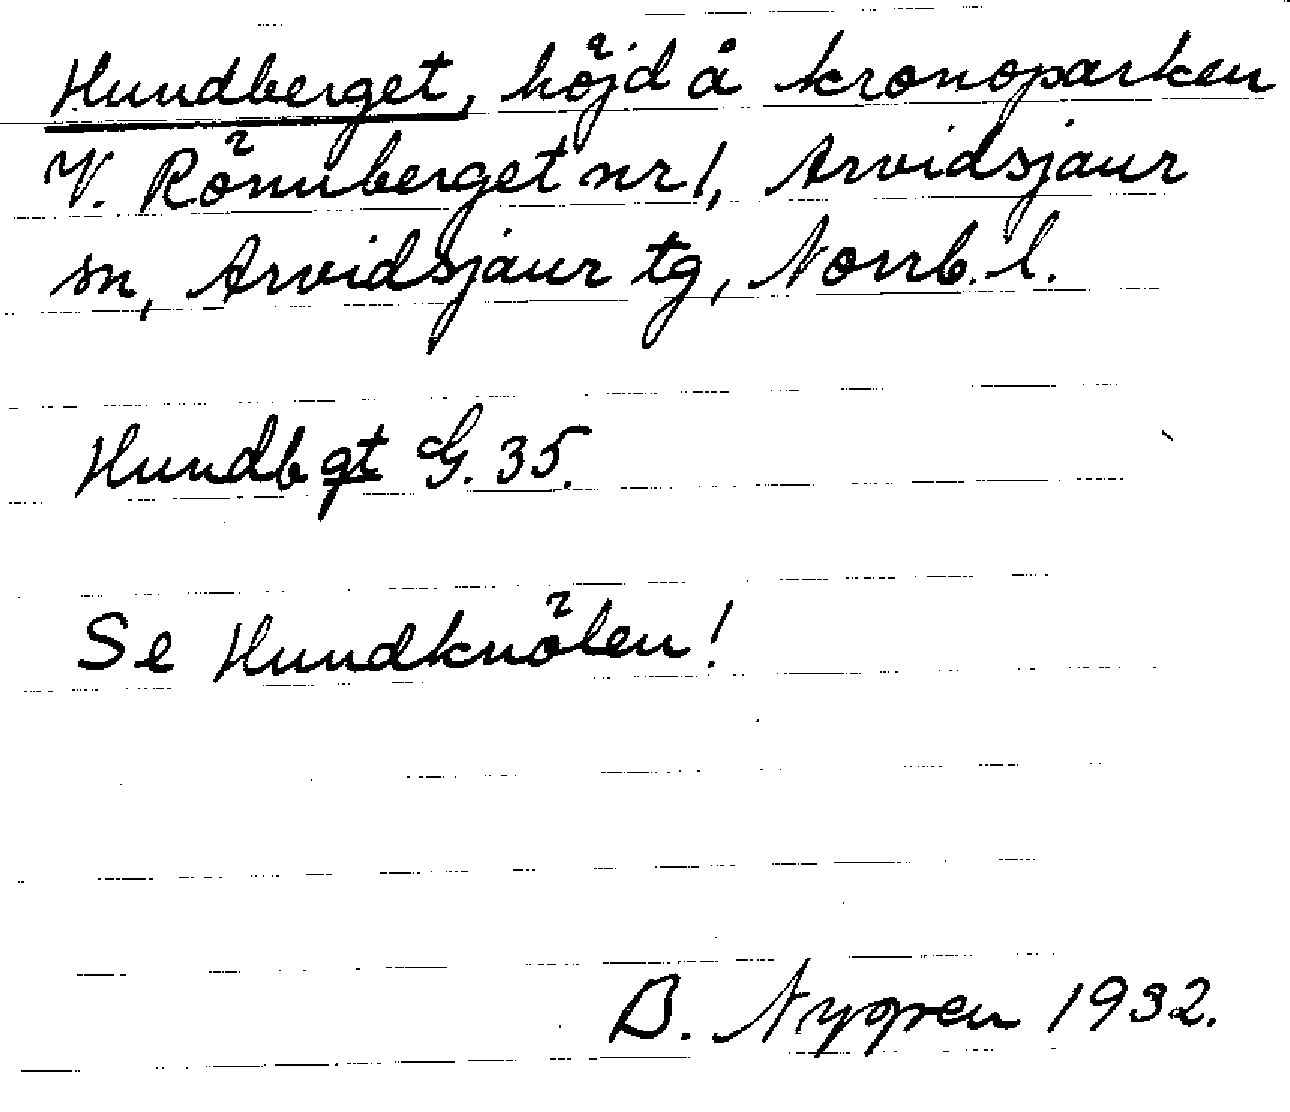 Hundberget, höjd å kronoparken
V. Rönnberget nr 1, Arvidsjaur
sn, Arvidsjaur tg, Norrb. l.
Hundbgt G. 35.
Se Hundknölen!
B. Nygren 1932.